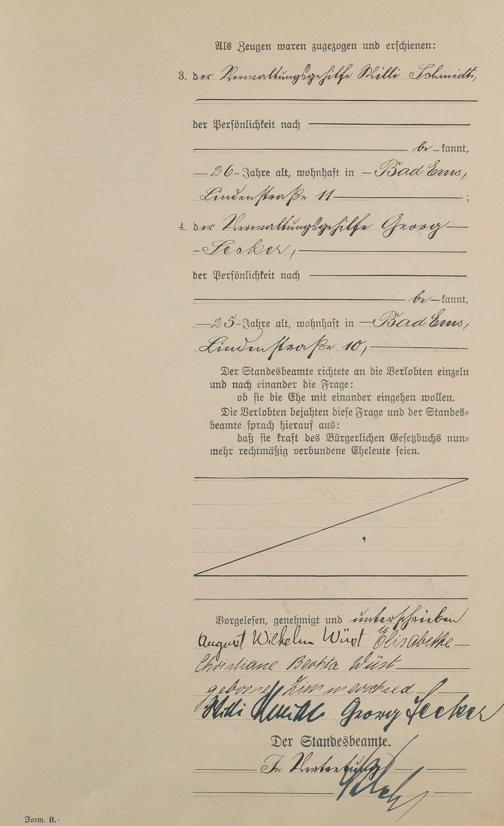 Als Zeugen waren zugezogen und erschienen:
3. der Verwaltungsgehilfe Willi Schmidt,
der Persönlichkeit nach
be-kannt,
26 Jahre alt, wohnhaft in Bad Ems,
Lindenstraße 11 ;
4. der Verwaltungsgehilfe Georg
Secker,
der Persönlichkeit nach
be-kannt,
25 Jahre alt, wohnhaft in Bad Ems,
Lindenstraße 10,
Der Standesbeamte richtete an die Verlobten einzeln
und nach einander die Frage:
ob sie die Ehe mit einander eingehen wollen.
Die Verlobten bejahten diese Frage und der Standes-
beamte sprach hierauf aus:
daß sie kraft des Bürgerlichen Gesetzbuchs nun-
mehr rechtmäßig verbundene Eheleute seien.
Vorgelesen, genehmigt und unterschrieben
August Wilhelm Wüst Elisabethe
Christiane Bertha Wüst
geborne
Willi Schmidt Georg Secker
Der Standesbeamte.
In Vertretung
Form. B.